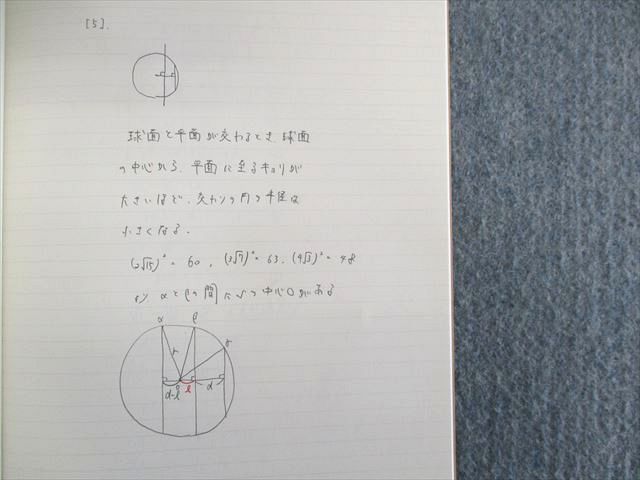 [5].
球面と平面が交わるとき、球面
の中心から、平面に至るキョリが
大きいほど、交わりの円の半径は
小さくなる.
(2√15)² = 60 , (3√7)² = 63 , (4√3)² = 48
より αとβの間にSの中心Oがある
α β
γ
r
d-l l d